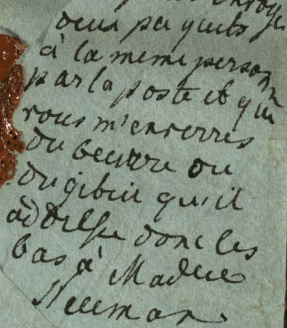 envoyé
deux paquets
à la meme person
par la poste et que
vous m'enverres
du beurre ou
du gibier qu'il
adresse donc les
bas à Madme